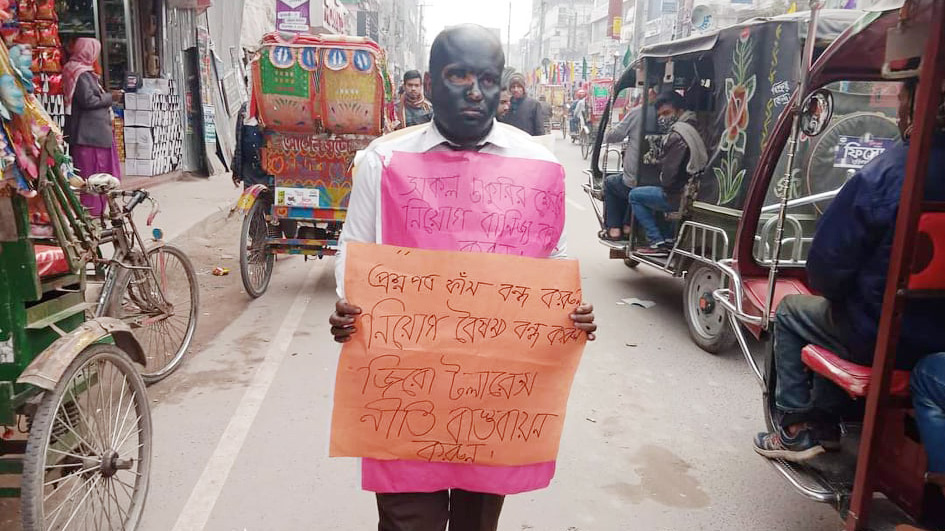 সকল চাকুরির ক্ষেত্রে
নিয়োগ বানিজ্য বন্ধ
করুন
প্রশ্নপত্র ফাঁস বন্ধ করুন
নিয়োগ বৈষম্য বন্ধ করুন
জিরো টলারেন্স
নীতি বাস্তবায়ন
করুন।